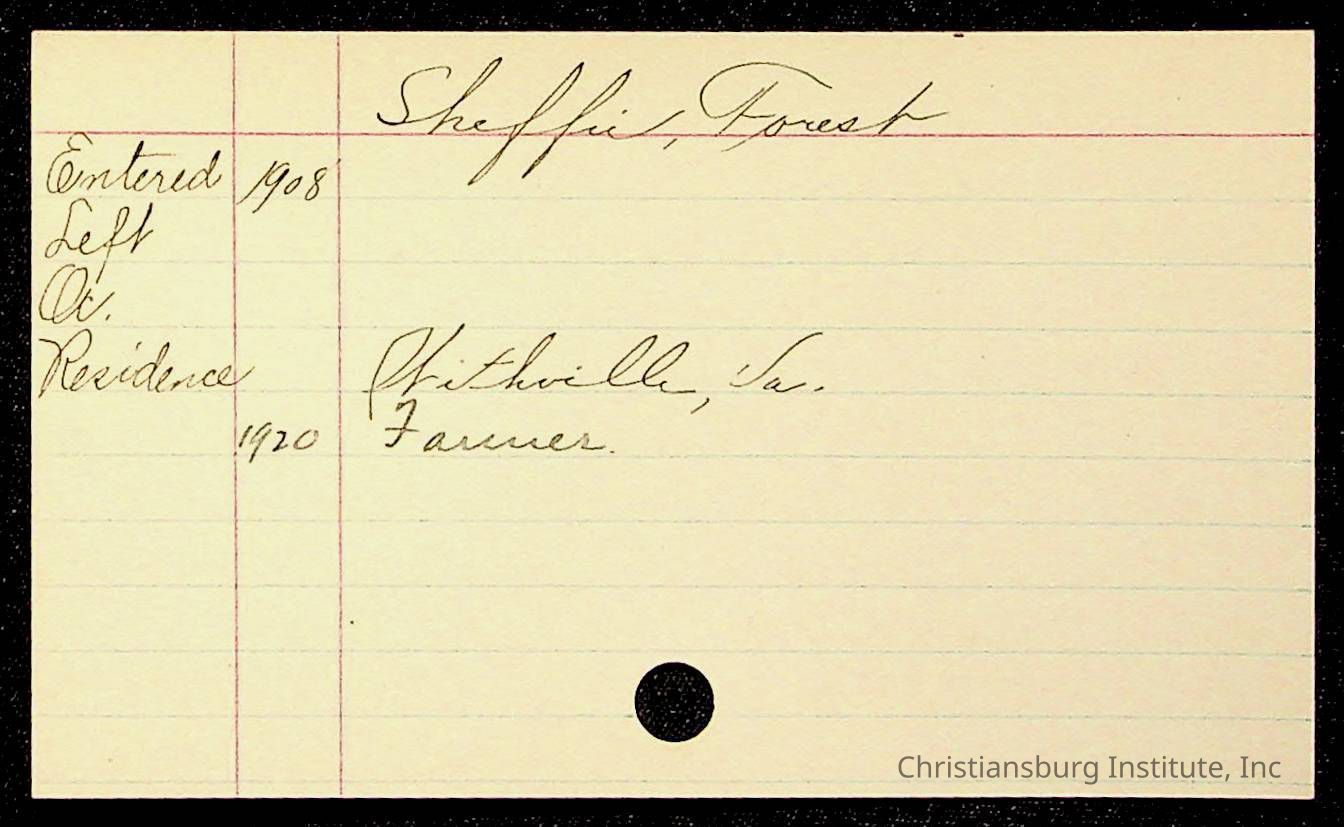 Sheffie, Forest
Entered 1908
Left
Oc.
Residence Withville, Va.
1920 Farmer.
Christiansburg Institute, Inc